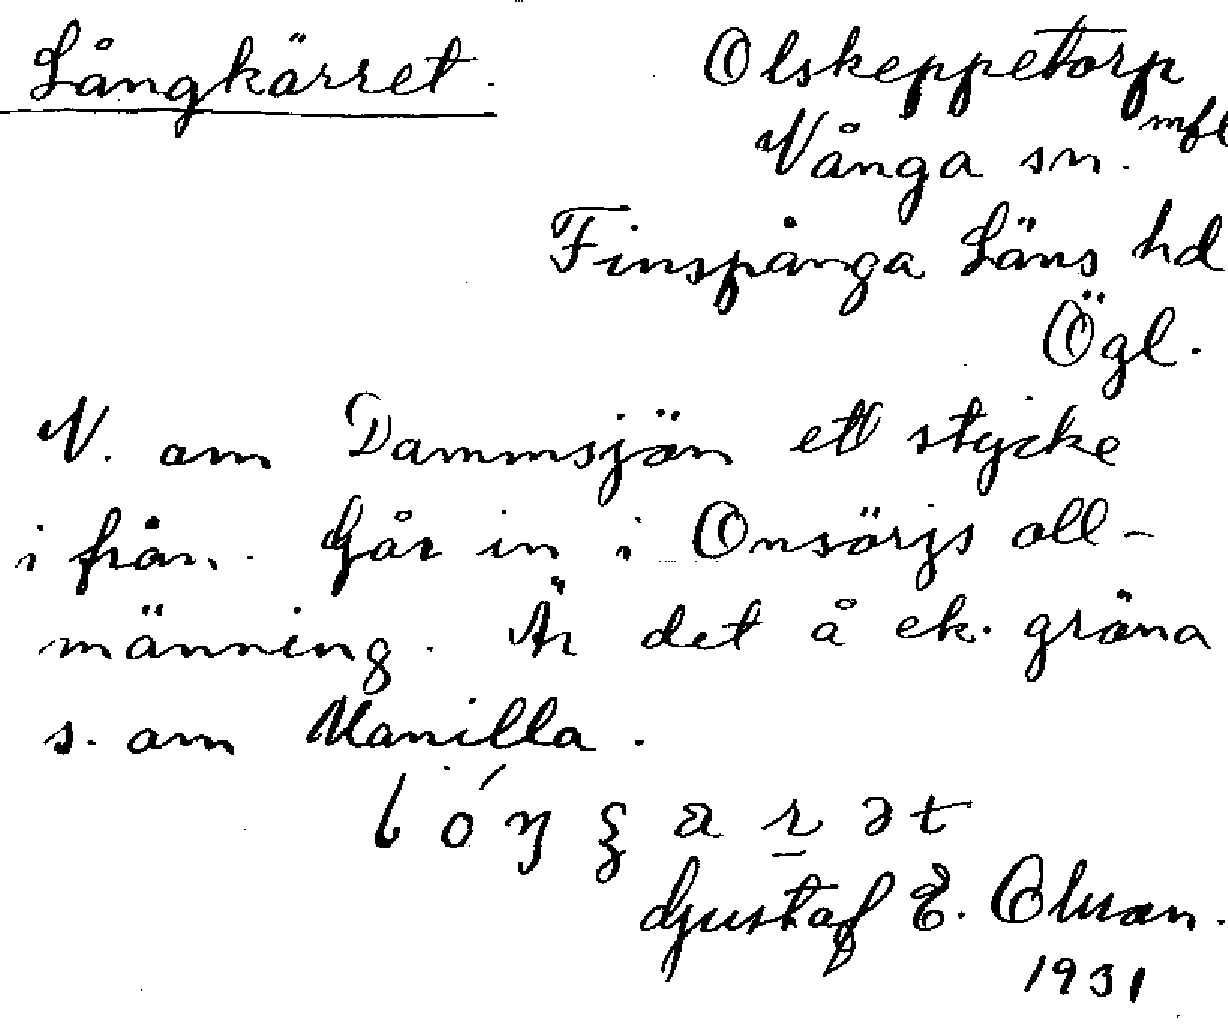 Långkärret.
Olskeppetorp
mfl
Vånga sn.
Finspånga Läns hd
Ögl.
N. om Dammsjön ett stycke
i från. Går in i Onsörjs all-
männing. Är det å ek. gröna
s. om Manilla.
Gustaf E. Olman.
1931